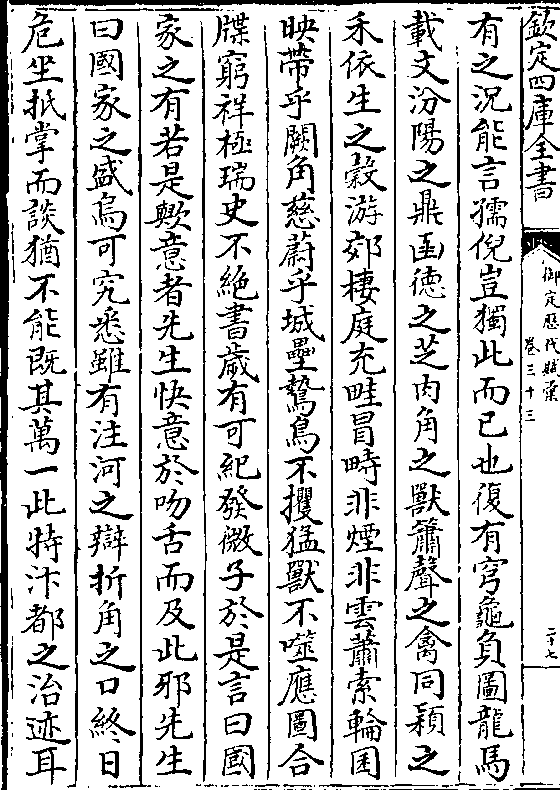 欽定四庫全書
御定歷代賦彙
卷三十三
二十七
有之況能言孺倪豈獨此而已也復有穹龜負圖龍馬
載文汾陽之鼎函德之芝肉角之獸簫聲之禽同穎之
禾依生之穀游郊棲庭充畦冒畴非煙非雲蕭索輪囷
映帶乎闕角慈蔚乎城壘鷙鳥不攫猛獸不噬應圖合
牒窮祥極瑞史不絕書歲有可紀發微子於是言曰國
家之有若是歟意者先生快意於吻舌而及此邪先生
曰國家之盛烏可究悉雖有注河之辯折角之口終日
危坐抵掌而談猶不能既其萬一此特汴都之治迹耳